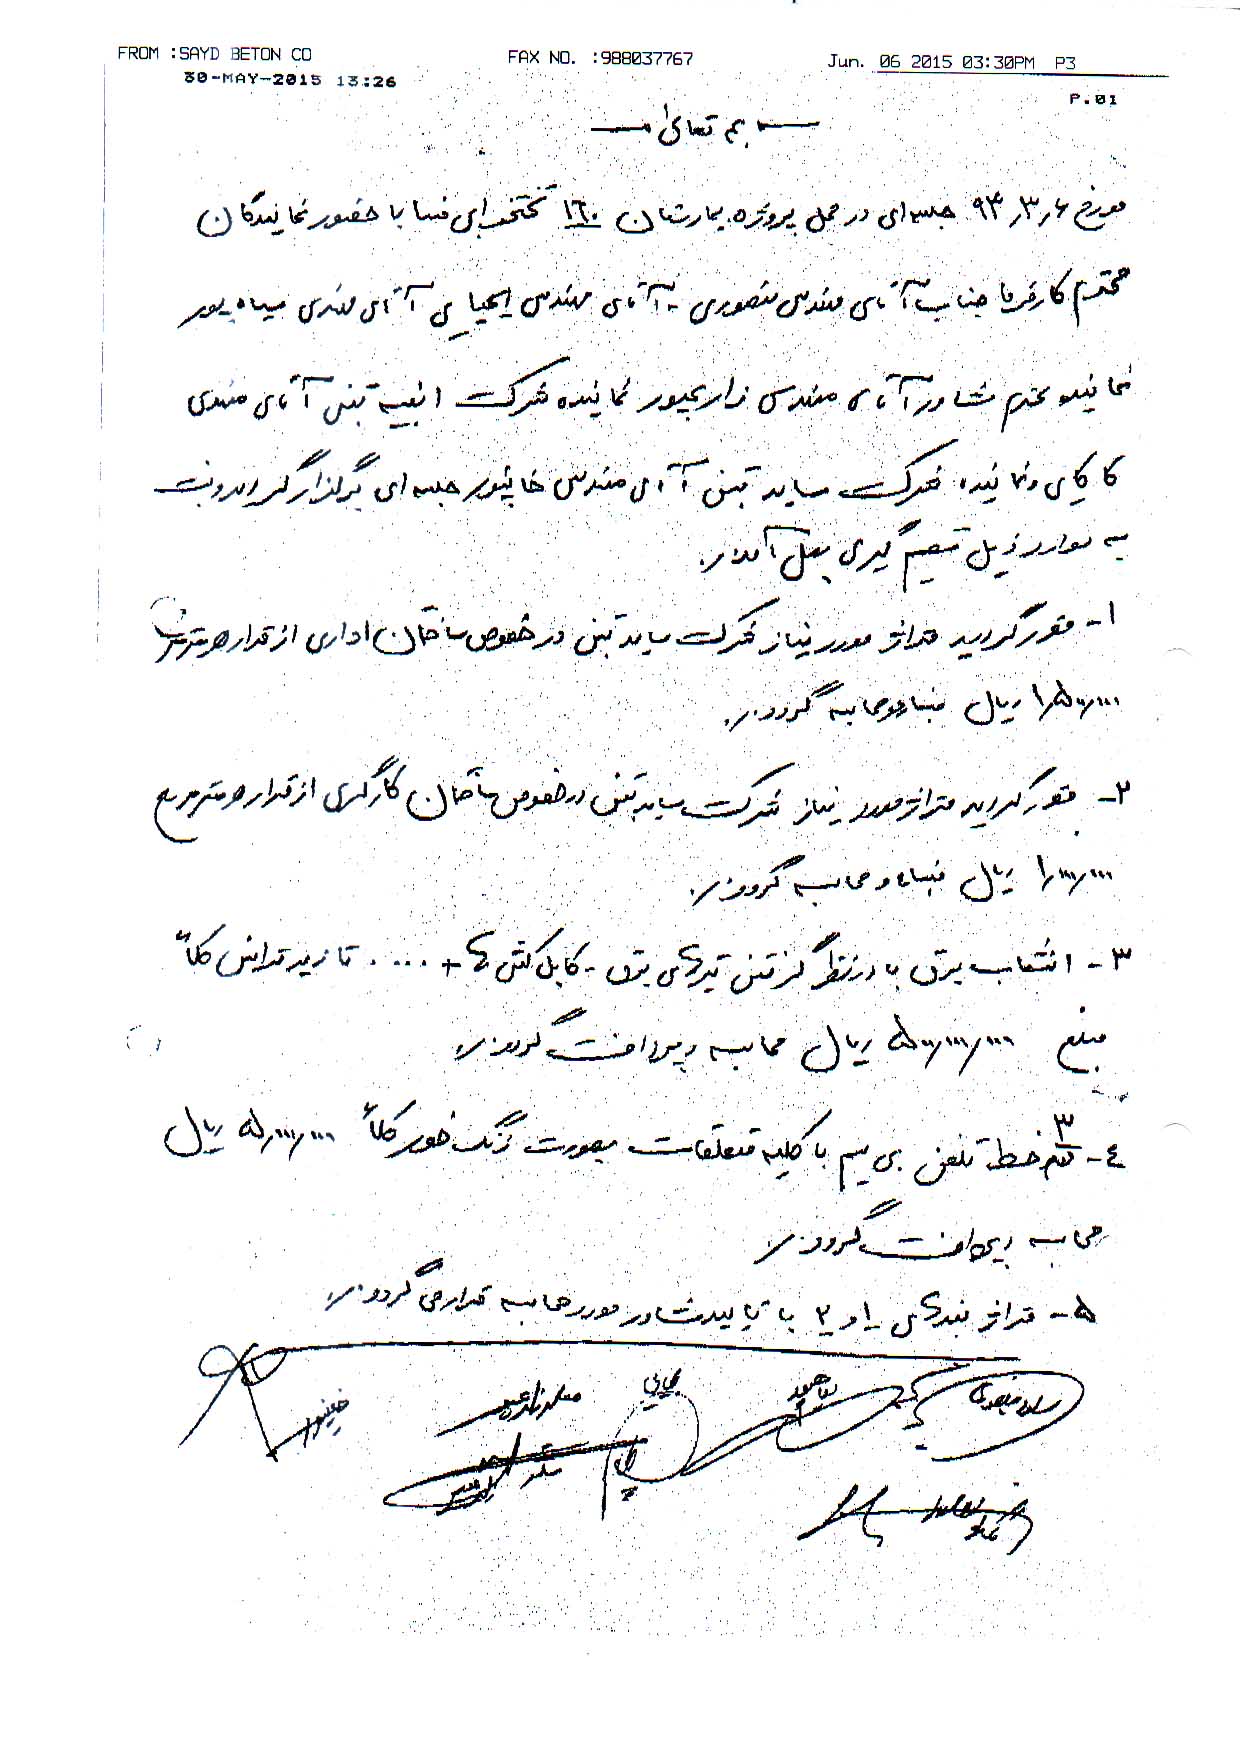 FROM :SAYD BETON CO FAX NO. :988037767 Jun. 06 2015 03:30PM P3
30-MAY-2015 13:26
P.01
بسمه تعالی
مورخ ۹۴٫۳٫۶ جلسه‌ای در محل پروژه بیمارستان ۱۶۰ تختخوابی فسا با حضور نمایندگان
محترم کارفرما جناب آقای مهندس منصوری - آقای مهندس آقای مهندس سیاه پور
نماینده محترم مشاور آقای مهندس نماینده شرکت ابنیه بتن آقای مهندس
کاکای و نماینده شرکت ساید بتن آقای مهندس جلسه ای برگزار گردید و نسبت
به موارد ذیل تصمیم گیری بعمل آمد./
۱- مقرر گردید متراژ مورد نیاز شرکت ساید بتن در خصوص ساختمان اداری از قرار هر متر مربع
۱٫۵۰۰٫۰۰۰ ریال مبنا و محاسبه گردد./
۲- مقرر گردید متراژ مورد نیاز شرکت ساید بتن در خصوص ساختمان کارگری از قرار هر متر مربع
۱٫۰۰۰٫۰۰۰ ریال مبنا و محاسبه گردد./
۳- انشعاب برق با در نظر گرفتن تیرهای برق - کابل کشی ها + .... تا زیر ترانس کلاً
مبلغ ۵۰۰٫۰۰۰٫۰۰۰ ریال محاسبه و پرداخت گردد./
۴- ۳ خط تلفن بی سیم با کلیه متعلقات بصورت زنگ خور کلاً ۵۰٫۰۰۰٫۰۰۰ ریال
محاسبه و پرداخت گردد./
۵- متراژ بندهای ۱ و ۲ با تایید مشاور مورد محاسبه قرار می گردد./